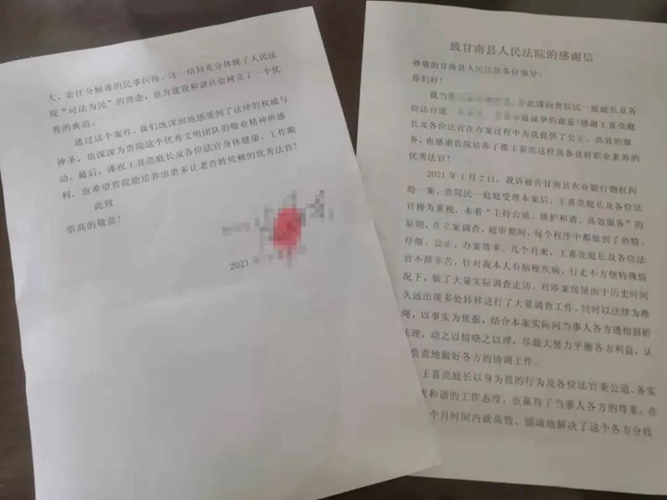 致甘南县人民法院的感谢信
尊敬的甘南县人民法院各位领导:
你们好!
我当
在此谨向贵院民一庭庭长及各
位法官道
表示最诚挚的谢意!感谢王喜亮庭
长及各位法官在办案过程中为我提供了公正、高效的服
务,也感谢贵院培养了像王喜亮这样具备良好职业素养的
优秀法官!
2021年1月2日,我诉被告甘南县农业银行物权纠
纷一案,贵院民一庭庭受理本案后,王喜亮庭长及各位法
官极为重视,本着“主持公道、维护和谐、高效服务”的
原则,在立案调查、庭审期间,每个程序中都做到了热情、
仔细、公正、办案效率。几个月来,王喜亮庭长及各位法
官不辞辛苦,针对我本人有脑梗疾病,行走不方便特殊情
况下,做了大量实际调查走访,对涉案房屋由于历史时间
久远出现多处转移进行了大量调查工作。同时以法律为准
绳,以事实为凭据,结合本案实际向当事人各方透彻剖析
法理,动之以情晓之以理,尽最大努力平衡各方利益,认
负责地做好各方的协调工作。
王喜亮庭长以身为范的行为及各位法官秉公道、务实
求和谐的工作态度,也赢得了当事人各方的尊重,在
个月时间内就高效、圆满地解决了这个各方分歧
大、责任分解难的民事纠纷。这一结局充分体现了人民法
院“司法为民”的理念,也为建设和谐社会树立了一个优
秀的典范。
通过这个案件,我们既深刻地感受到了法律的权威与
神圣,也深深为贵院这个优秀文明团队的敬业精神所感
动。最后,谨祝王喜亮庭长及各位法官身体健康、工作顺
利,也希望贵院能培养出更多让老百姓依赖的优秀法官!
此致
崇高的敬意!
2021年